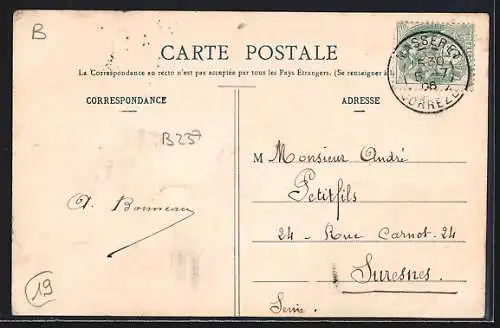 B
CARTE POSTALE
La Correspondance au recto n'est pas acceptée par tous les Pays Étrangers. (Se renseigner à
CORRESPONDANCE
ADRESSE
MASSERET
5 30
6 -7
08
CORRÈZE
B237
M Monsieur André
Petitfils
A. Bonneau
24 - Rue Carnot - 24
Suresnes.
Seine.
19